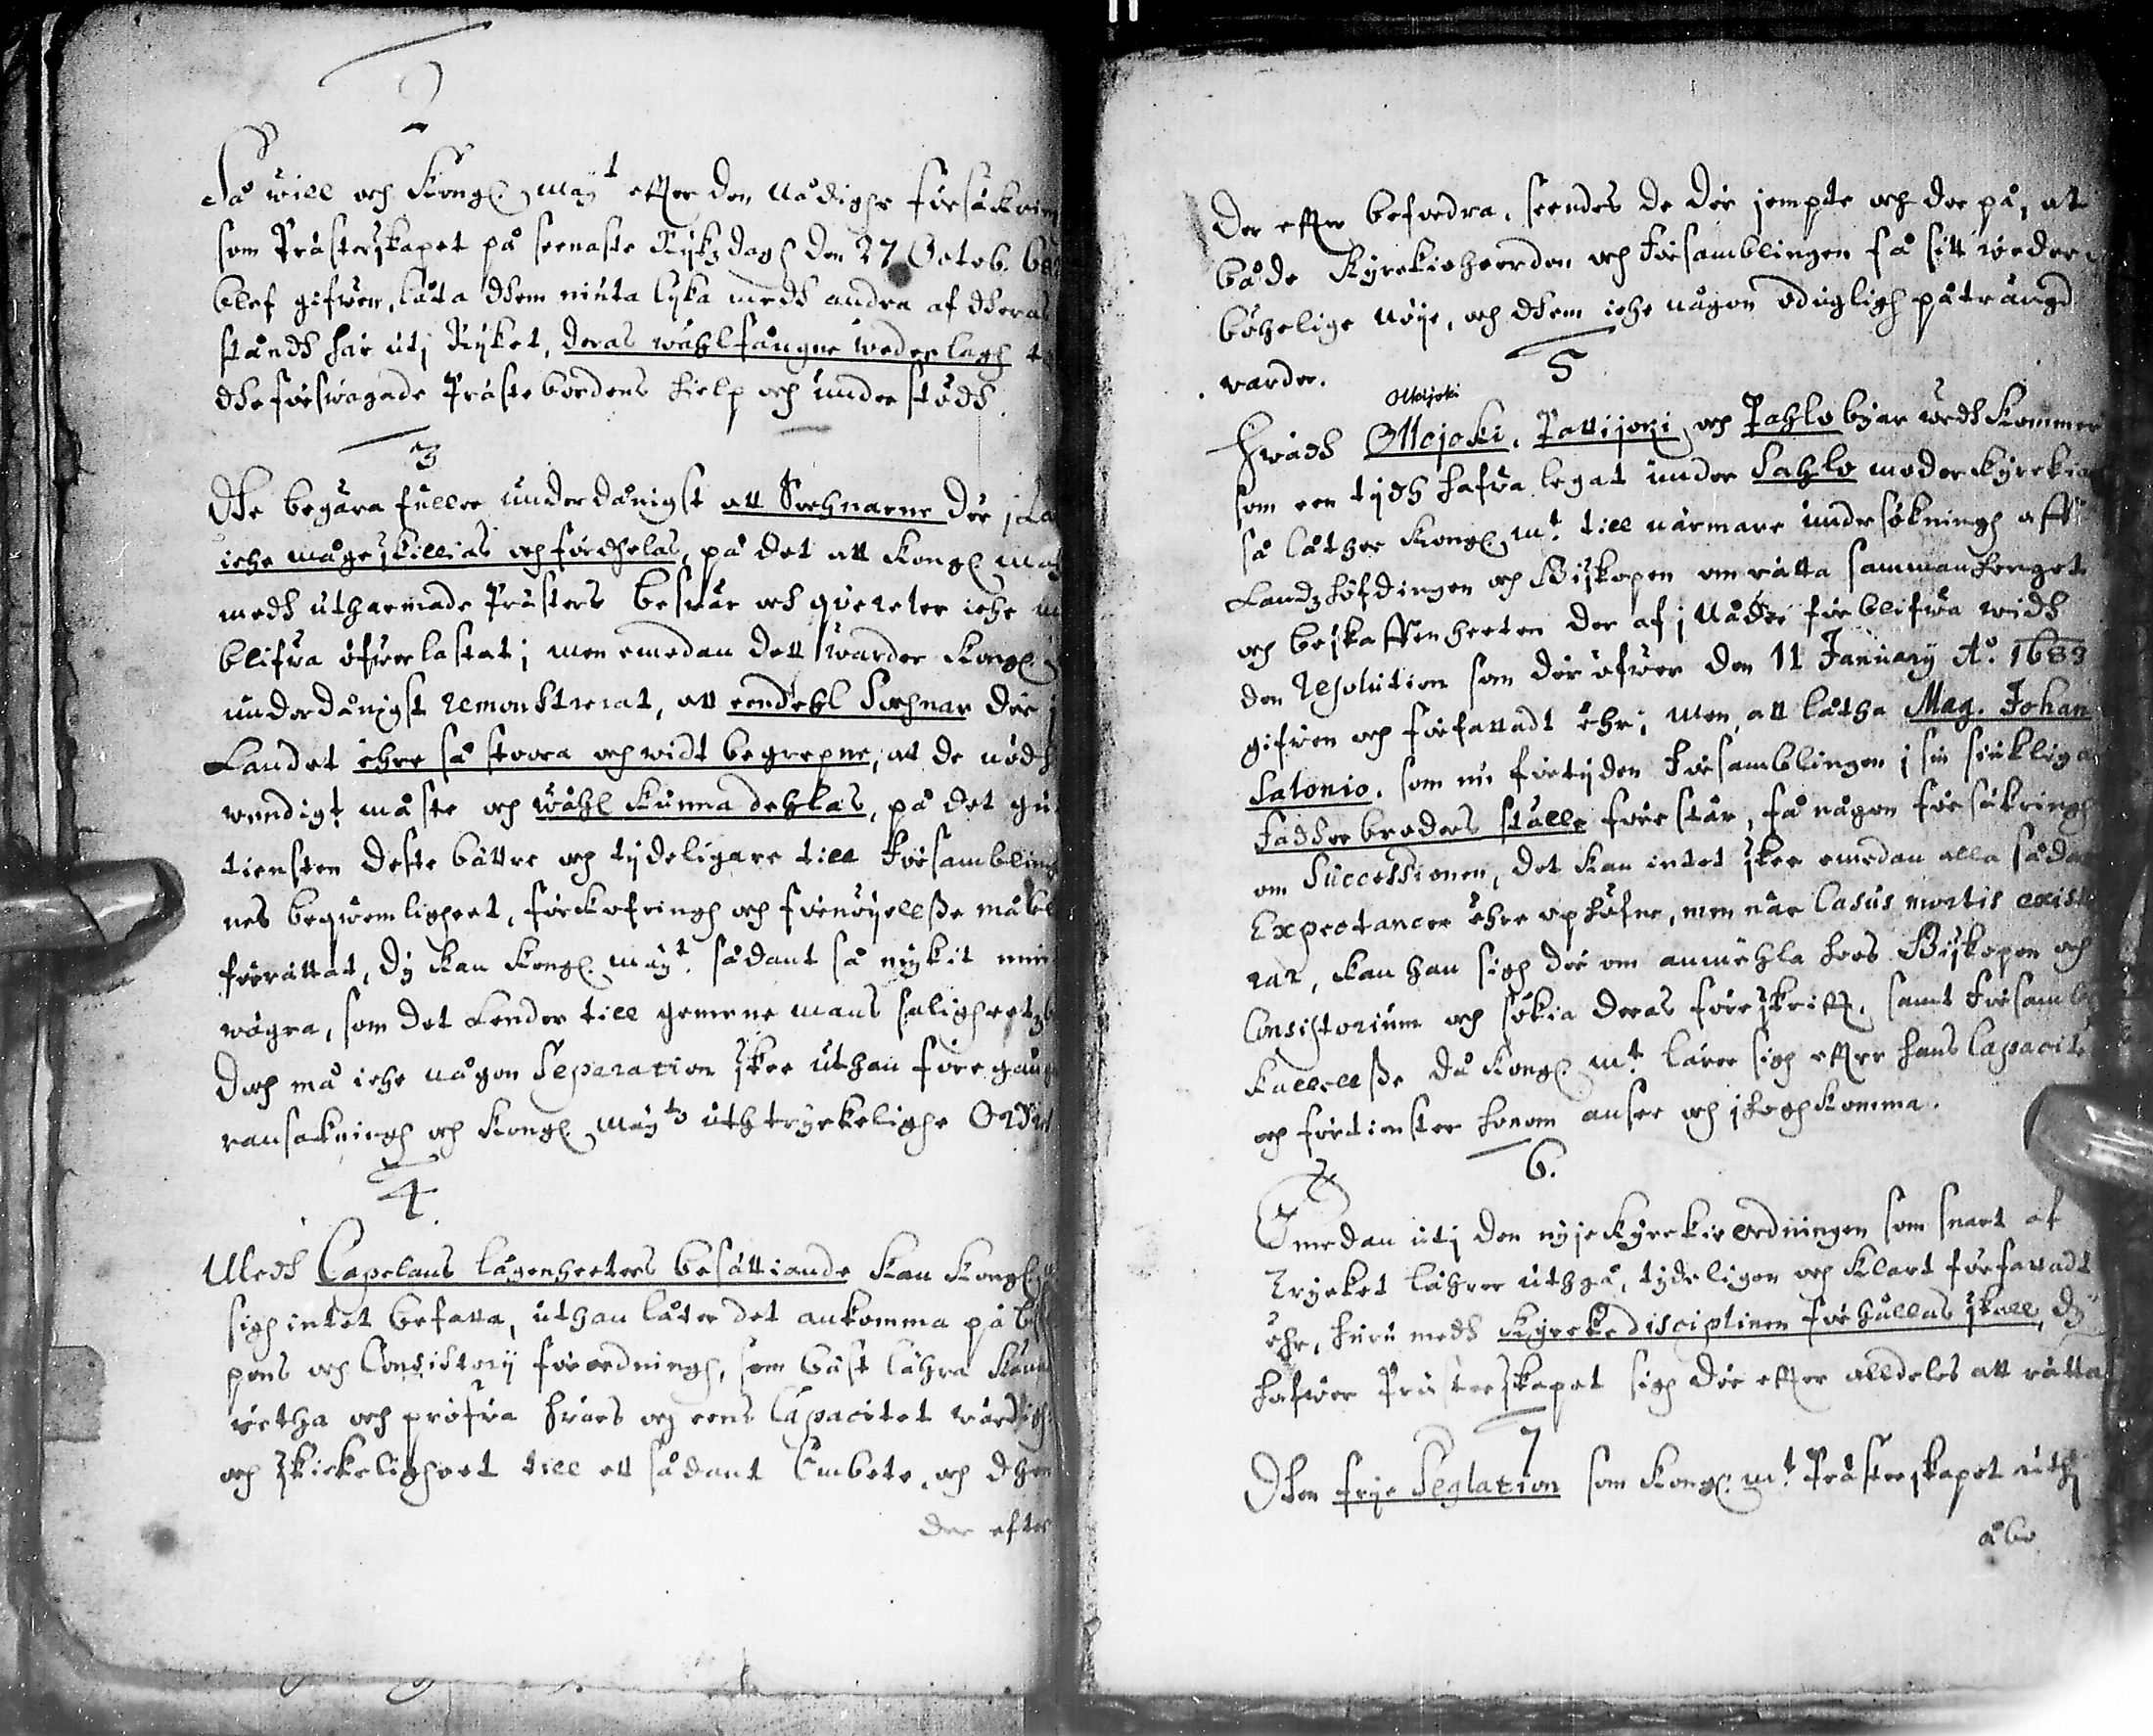 2
Så will och Kongl. Maijt effter den nådighe försäkrin
som Prästerskapet på seenaste Rijkzdagh den 27 Octob. 68
blef gifwen, låta dhem niuta lijka medh andra af dheras
ståndh här utj Rijket, deras wählfångne wederlagh t
dhe förswagade Prästebordens hielp och understödh.
3
Dhe begära fuller underdånigst att Sochnarne der j La
iche måge skillias och fördhelas, på det att Kongl. Maj
medh utharmade Prästers beswär och quereler iche m
blifwa öfwerlastat; men emedan dett warder Kongl.
underdånigst remonstrerat, att eendehl Sochnar der j
Landet ähre så stoora och widt begrepne, att de nödh
wendigt måste och wähl kunna dehlas, på det gu
tiensten deste bättre och tydeligare till Försambling
nes beqwemligheet, förkofringh och förnöijellsse må bl
förrättat, dy kan Kongl. Maijt. sådant så myckit min
wägra, som det lender till gemene mans saligheetz
doch må iche någon Separation skee uthan föregång
ransakningh och Kongl. Maijtz uthtryckelighe Ordre
4
Medh Capelans lägenheeters besättiande kan Kongl.
sigh intet befatta, uthan låter det ankomma på bis
pens och Consistorij förordningh, som bäst lährа kunn
wetha och pröfwa hwars och eens Capacitet wärdigh
och skickeligheet till ett sådant Embete, och dhen
der efter
der effter befordra, seendes de der jempte och der på, at
både Kyrckioheerden och Församblingen få sitt weder
böhrlige nöije, och dhem iche någon oduglighpåtrångd
varder.
5
Olkijoki
Hwadh Ollojoki, Pattijoki och Pahlo byar wedhkommer
som een tijdh hafwa legat under Sahlo moderkyrckia
så låther Kongl. Mt. till närmare undersökningh aff
Landzhöfdingen och Biskopen om rätta sammanhenget
och beskaffenheeten der af j Nåder förblifwa widh
den Resolution som der öfwer den 11 January Ao. 1683
gifwen och författadt ähr; Men att låtha Mag. Johan
Salonio, som nu förtijden Församblingen j sin siuklige
Fadherbroders ställe förestår, få någon försäkringh
om Successionen, det kan intet skee emedan alla sådan
Expectancer ähre ophäfne, men när Casus mortis existe
rar, kan han sigh der om anmähla hoos Biskopen och
Consistorium och sökia deras föreskrifft, samt Församb
kallellsse då Kongl. Mt. lärer sigh effter hans Capacite
och förtienster honom ansee och jhoghkomma.
6.
Emedan utj den nyje Kyrckioordningen som snart af
Trycket lährer uthgå, tydeligen och klart författadt
ähr, huru medh Kyrckedisciplinen förhållas skall, dy
hafwer Prästerskapet sigh der effter alldeles att rätta
7
Dhen frije Seglation som Kongl. Mt. Prästerskapet uthj
åbo